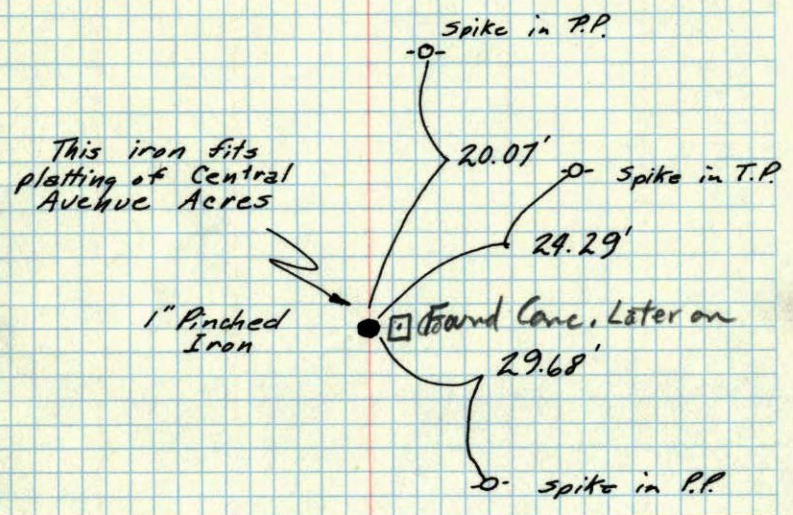 Spike in P.P.
This iron fits
platting of Central
Avenue Acres
20.07'
Spike in T.P.
24.29'
1" Pinched
Iron
Found Conc. Later on
29.68'
Spike in P.P.